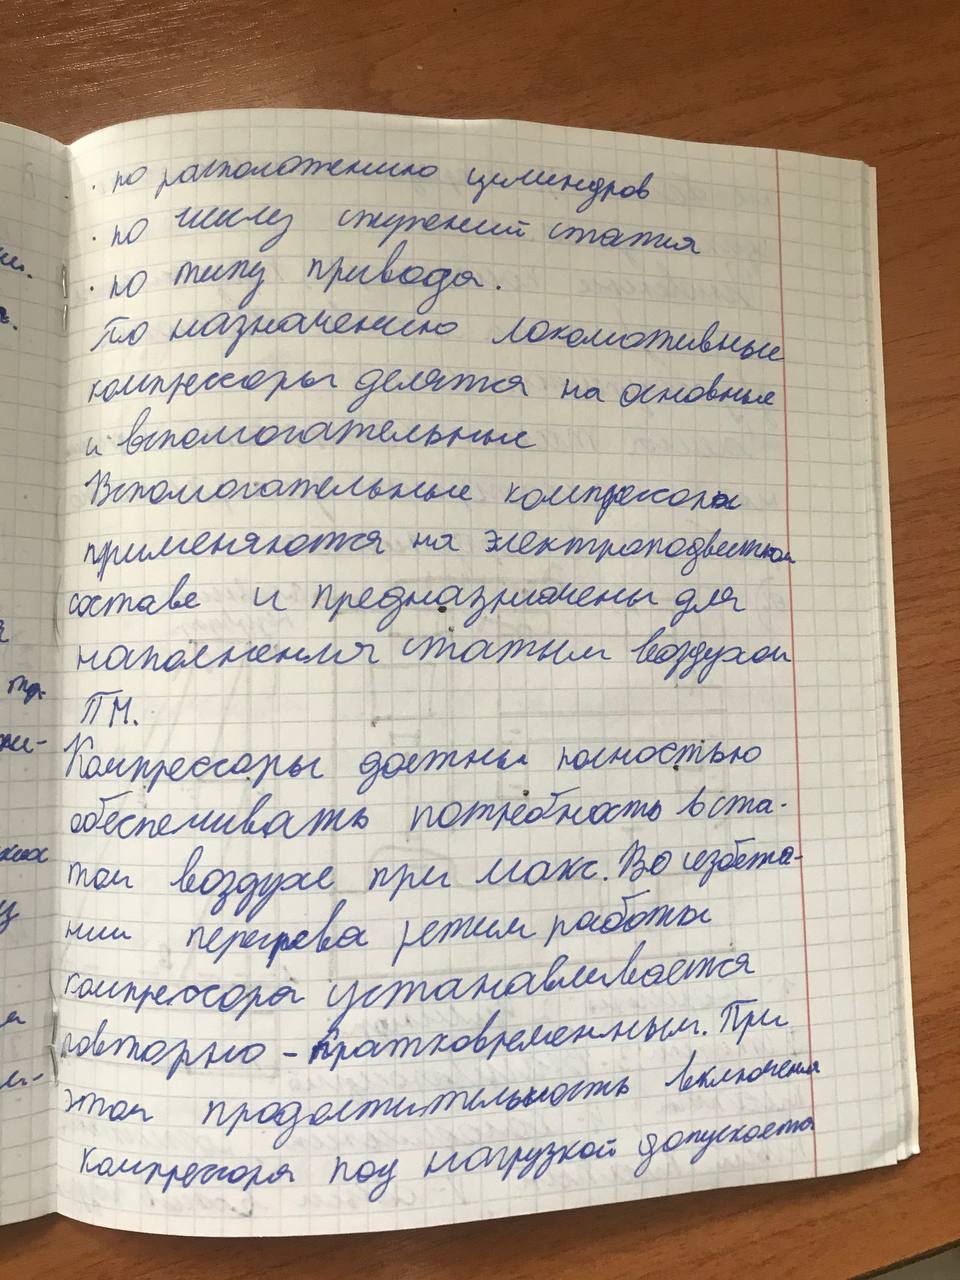 · по расположению цилиндров
· по числу ступений сжатия
· по типу привода.
По назначению локомотивные
компрессоры делятся на основные
и вспомогательные
Вспомогательные компрессоры
применяются на электроподвестном
составе и предназначены для
наполнения сжатым воздухом
ТМ.
Компрессоры должны полностью
обеспечивать потребность в сжа-
том воздухе при макс. Во избежа-
нии перегрева режим работы
компрессора устанавливается
повторно - кратковременным. При
этом продолжительность включения
компрессора под нагрузкой допускается